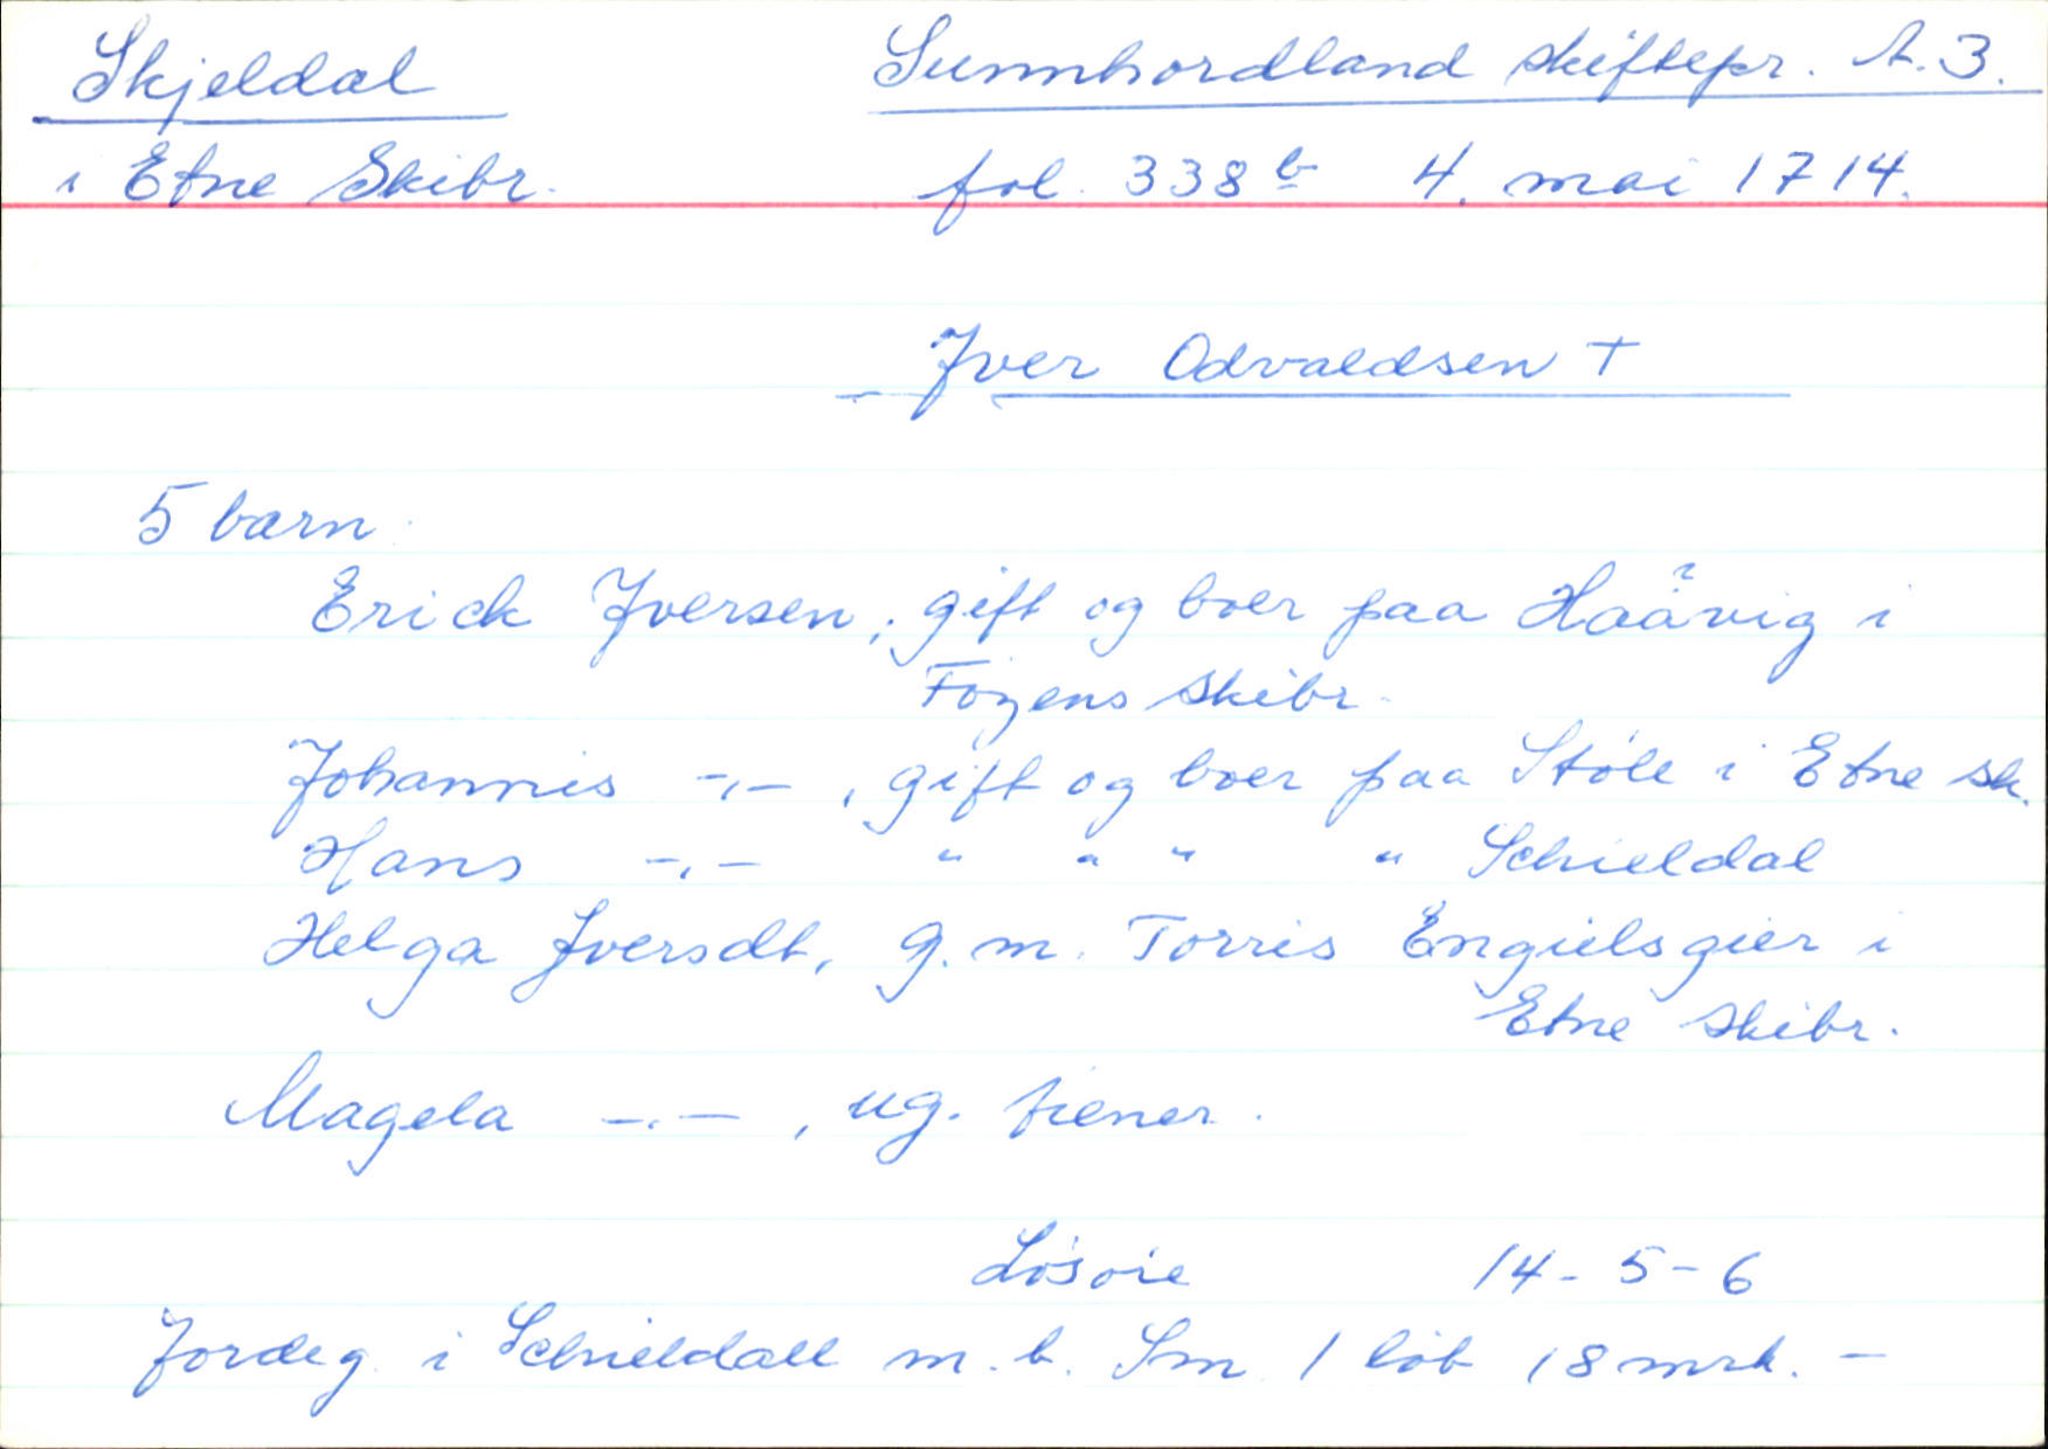 Skjeldal Sunnhordland skiftepr. A.3.
i Etne Skibr. fol. 338 b 4. mai 1714.
Iver Odvaldsen +
5 barn
Erick Iversen, gift og boer paa Haavig ? i
Föyens skibr.
Johannis -,- , gift og boer paa Støle i Etne sk.
Hans -,- " " " " Schieldal
Helga Iversdt, g. m. Torris Engielsgier i
Etne skibr.
Magela -,- , ug. tiener.
Løsøie 14-5-6
Jordeg. i Schieldall m. b. Sm. 1 løb 18 mrk. -